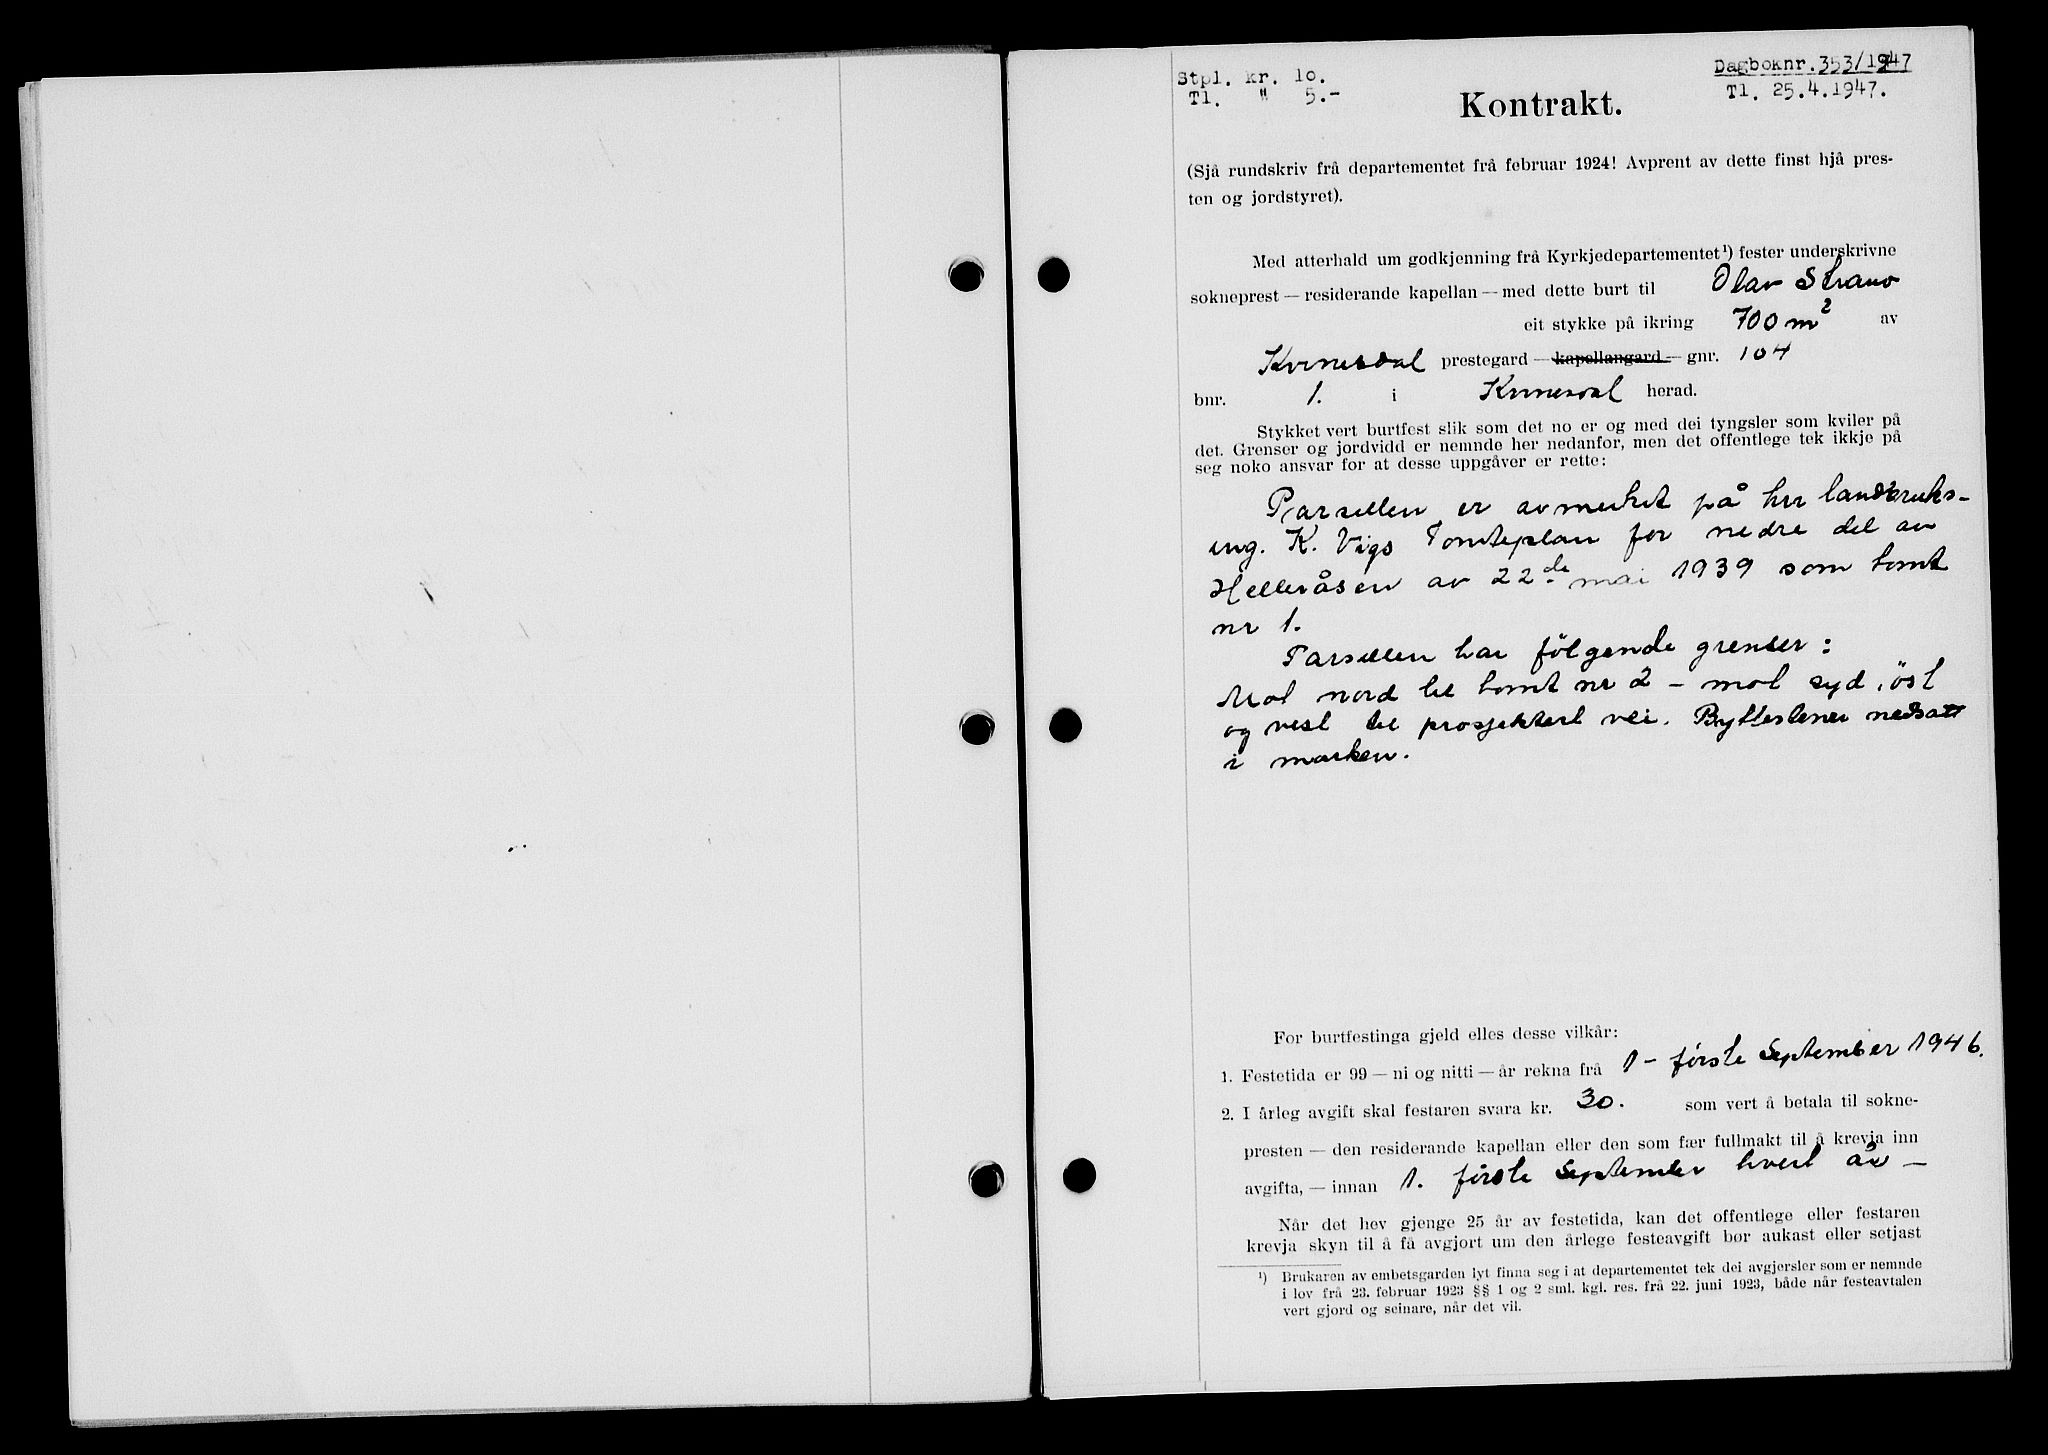 Stpl. kr. 10.
Tl. " 5.-
Dagboknr. 353/1947
Tl. 25.4.1947.
Kontrakt.
(Sjå rundskriv frå departementet frå februar 1924! Avprent av dette finst hjå pres-
ten og jordstyret).
Med atterhald um godkjenning frå Kyrkjedepartementet¹) fester underskrivne
sokneprest — residerande kapellan — med dette burt til Olav
eit stykke på ikring 700 m² av
Kvinesdal prestegard — kapellangard — gnr. 104
bnr. 1. i Kvinesdal herad.
Stykket vert burtfest slik som det no er og med dei tyngsler som kviler på
det. Grenser og jordvidd er nemnde her nedanfor, men det offentlege tek ikkje på
seg noko ansvar for at desse uppgåver er rette:
Parsellen er avmerket på hrr landbruks-
ing. K. Vigs Tomteplan for nedre del av
Helleråsen av 22de mai 1939 som tomt
nr 1.
Parsellen har følgende grenser:
Mot nord til tomt nr 2 – mot syd, öst
og vest til prosjektert vei. Byttestener nedsatt
i marken.
For burtfestinga gjeld elles desse vilkår:
1. Festetida er 99 — ni og nitti — år rekna frå 1 – første September 1946.
2. I årleg avgift skal festaren svara kr. 30. som vert å betala til sokne-
presten — den residerande kapellan eller den som fær fullmakt til å krevja inn
avgifta, — innan 1. første September hvert år —
Når det hev gjenge 25 år av festetida, kan det offentlege eller festaren
krevja skyn til å få avgjort um den årlege festeavgift bør aukast eller setjast
¹) Brukaren av embetsgarden lyt finna seg i at departementet tek dei avgjersler som er nemnde
i lov frå 23. februar 1923 §§ 1 og 2 sml. kgl. res. frå 22. juni 1923, både når festeavtalen
vert gjord og seinare, når det vil.